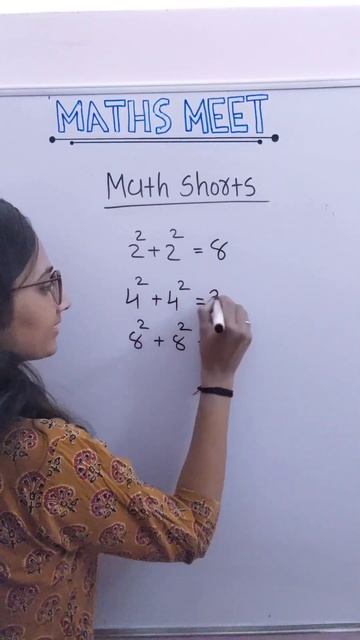 MATHS MEET
Math Shorts
2² + 2² = 8
4² + 4² =
8² + 8²